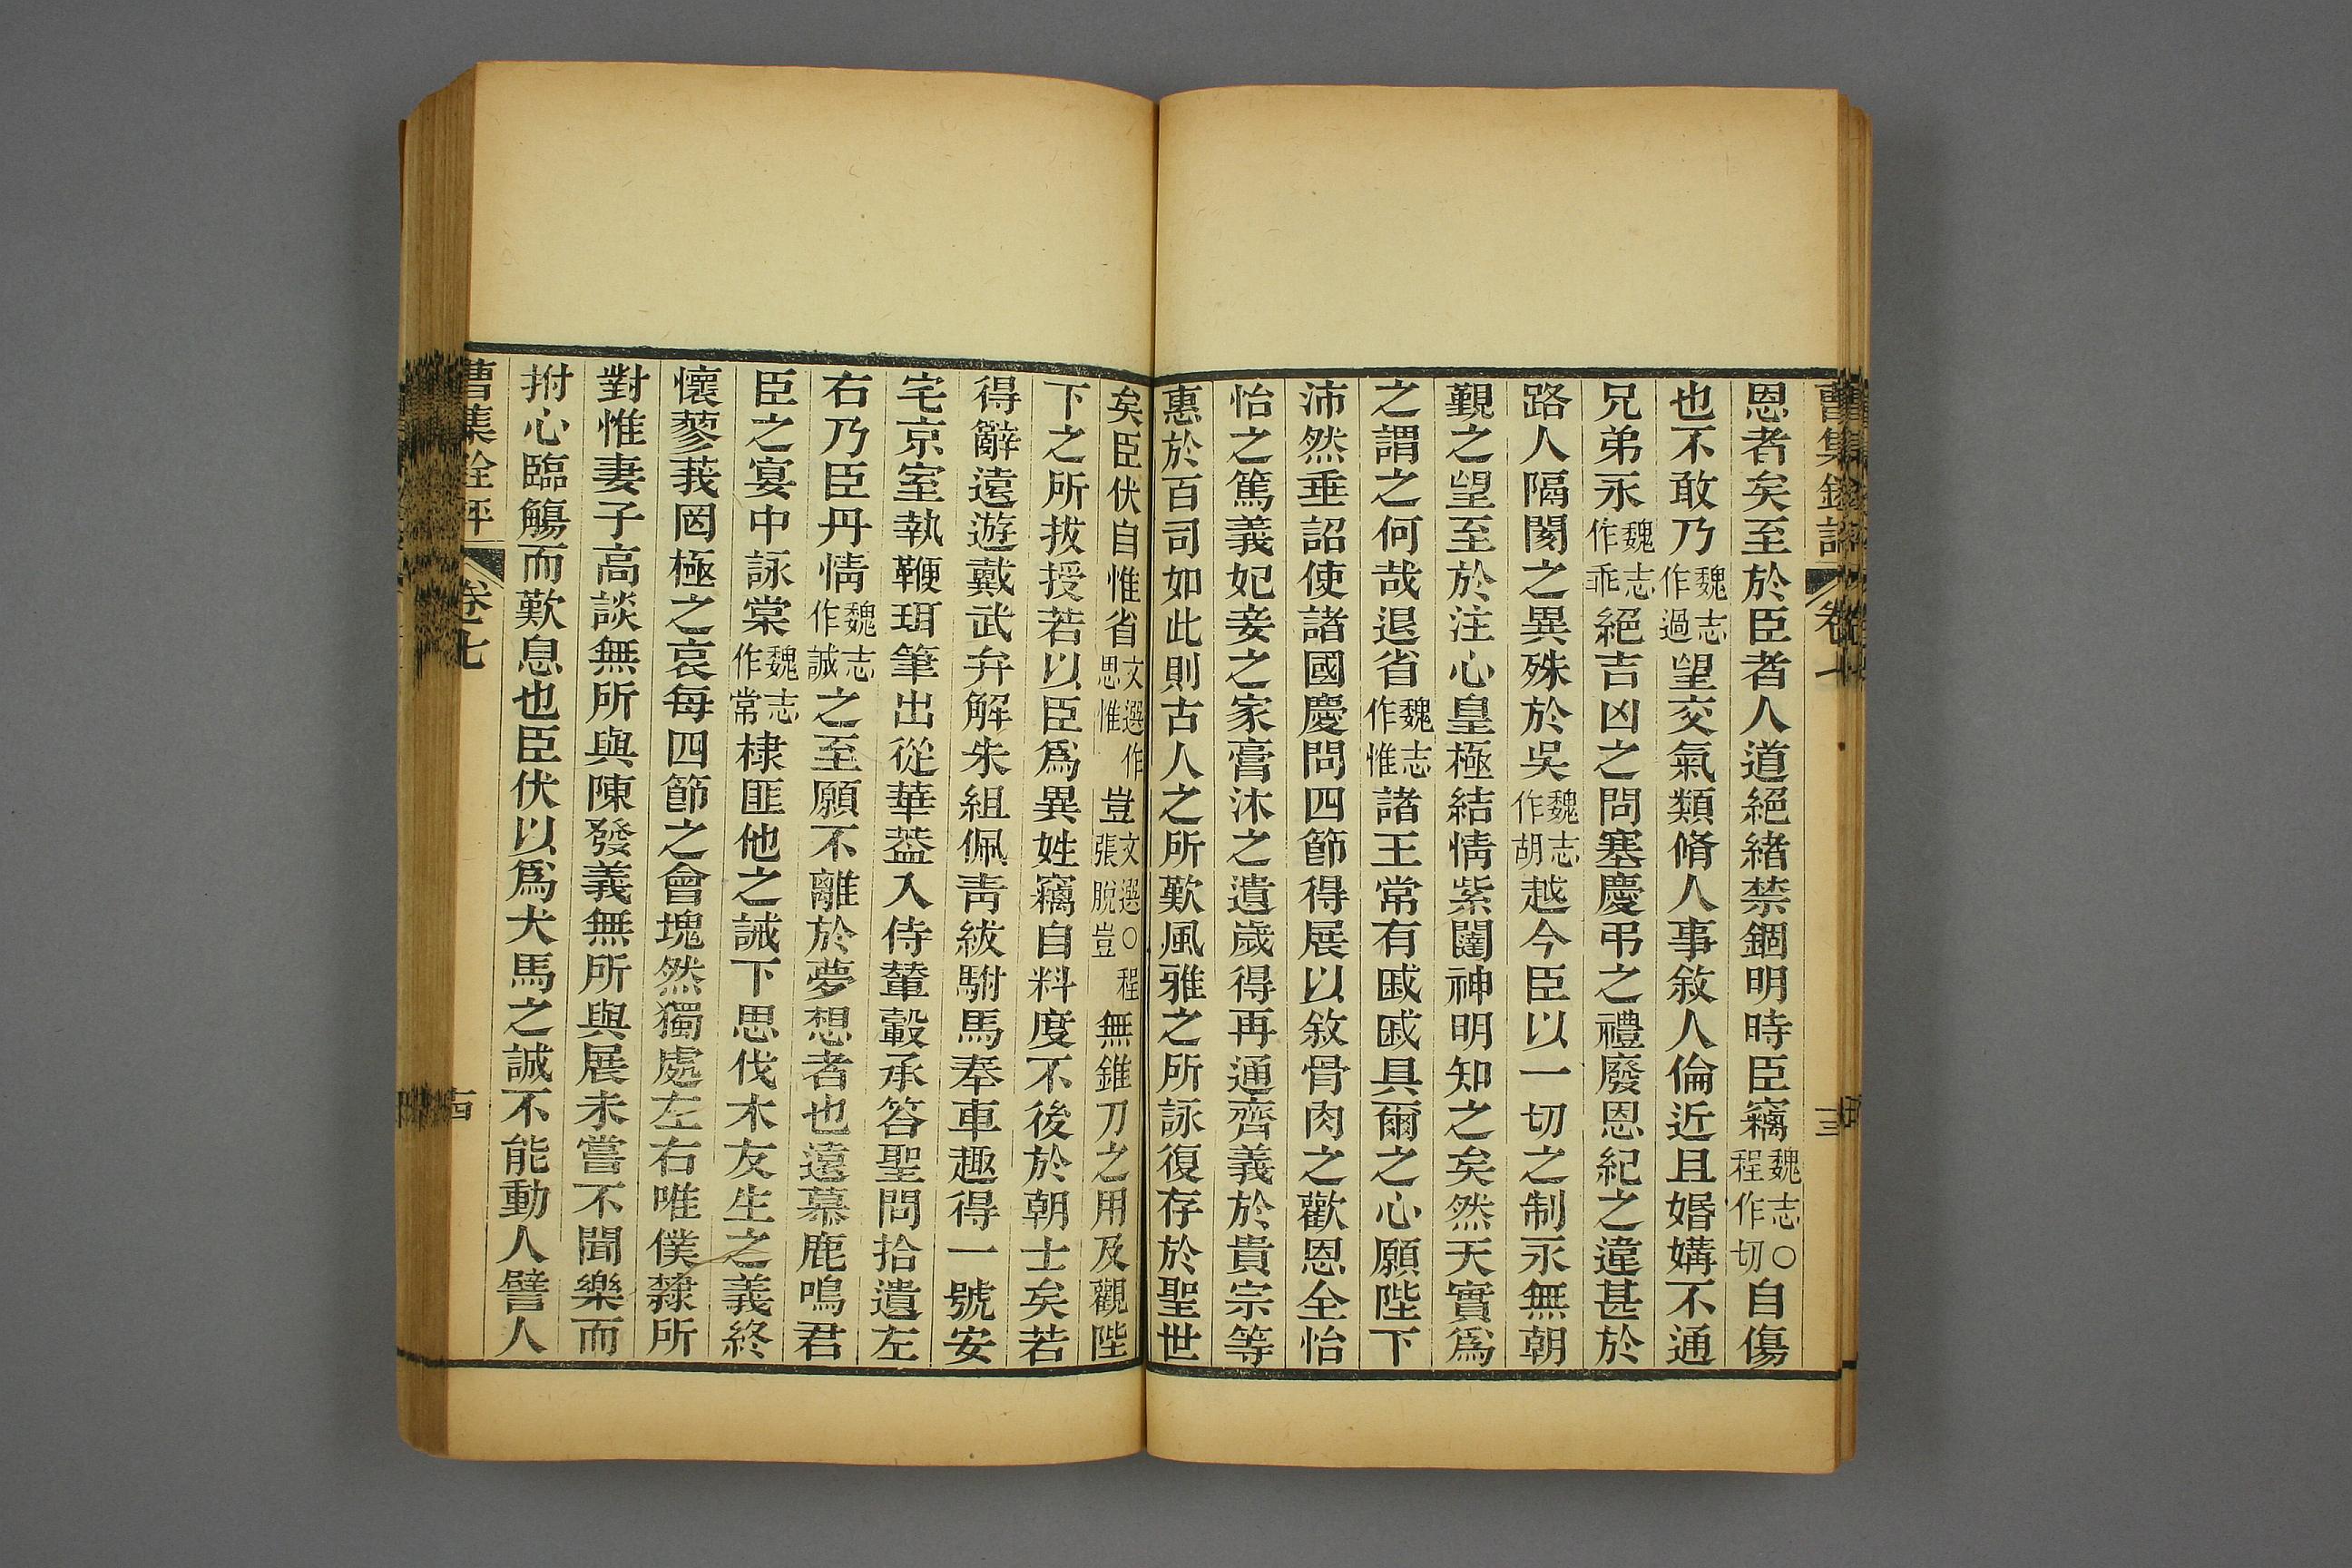 曹集銓評 卷七 三
恩者矣至於臣者人道絕緒禁錮明時臣竊魏志○程作切自傷
也不敢乃魏志作過望交氣類脩人事敘人倫近且婚媾不通
兄弟永魏志作乖絕吉凶之問塞慶弔之禮廢恩紀之違甚於
路人隔閡之異殊於吳魏志作胡越今臣以一切之制永無朝
覲之望至於注心皇極結情紫闥神明知之矣然天實爲
之謂之何哉退省魏志作惟諸王常有戚戚具爾之心願陛下
沛然垂詔使諸國慶問四節得展以敘骨肉之歡恩全怡
怡之篤義妃妾之家膏沐之遺歲得再通齊義於貴宗等
惠於百司如此則古人之所歎風雅之所詠復存於聖世
矣臣伏自惟省文選作思惟豈文選○程張脫豈無錐刀之用及觀陛
下之所拔授若以臣爲異姓竊自料度不後於朝士矣若
得辭遠遊戴武弁解朱組佩靑紱駙馬奉車趣得一號安
宅京室執鞭珥筆出從華蓋入侍輦轂承答聖問拾遺左
右乃臣丹情魏志作誠之至願不離於夢想者也遠慕鹿鳴君
臣之宴中詠棠魏志作常棣匪他之誡下思伐木友生之義終
懷蓼莪罔極之哀每四節之會塊然獨處左右唯僕隸所
對惟妻子高談無所與陳發義無所與展未嘗不聞樂而
拊心臨觴而歎息也臣伏以爲犬馬之誠不能動人譬人
曹集銓評 卷七